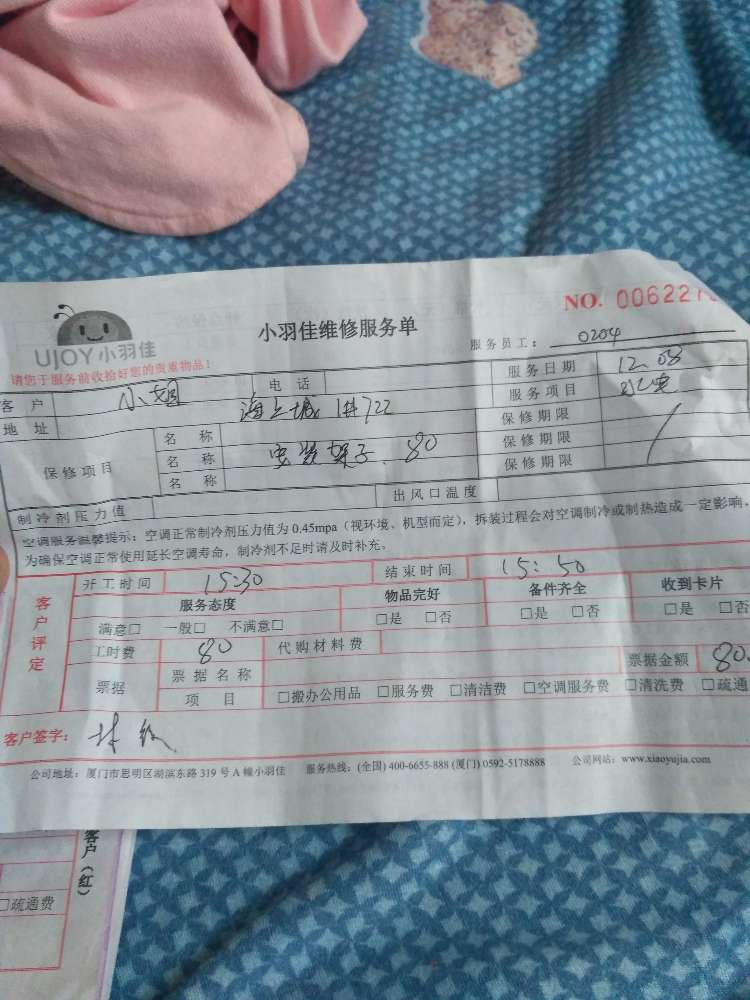 NO. 00622
UJOY小羽佳
小羽佳维修服务单
服务员工： 0204
请您于服务前收拾好您的贵重物品！
客 户 小姐 电 话 服务日期 12.08
地 址 海上城 1#722 服务项目
保修项目 名 称 保修期限
名 称 安装架子. 80 保修期限
名 称 保修期限
制冷剂压力值 出风口温度
空调服务温馨提示：空调正常制冷剂压力值为 0.45mpa（视环境、机型而定），拆装过程会对空调制冷或制热造成一定影响。
为确保空调正常使用延长空调寿命，制冷剂不足时请及时补充。
客户评定
开工时间 15:30 结束时间 15:50
服务态度 物品完好 备件齐全 收到卡片
满意□ 一般□ 不满意□ □是 □否 □是 □否 □是 □否
工时费 80 代购材料费
票据 票据名称 票据金额 80.
项 目 □搬办公用品 □服务费 □清洁费 □空调服务费 □清洗费 □疏通
客户签字： 林
公司地址：厦门市思明区湖滨东路 319 号 A 幢小羽佳 服务热线：(全国) 400-6655-888 (厦门) 0592-5178888 公司网站：www.xiaoyujia.com
客户（红）
□疏通费